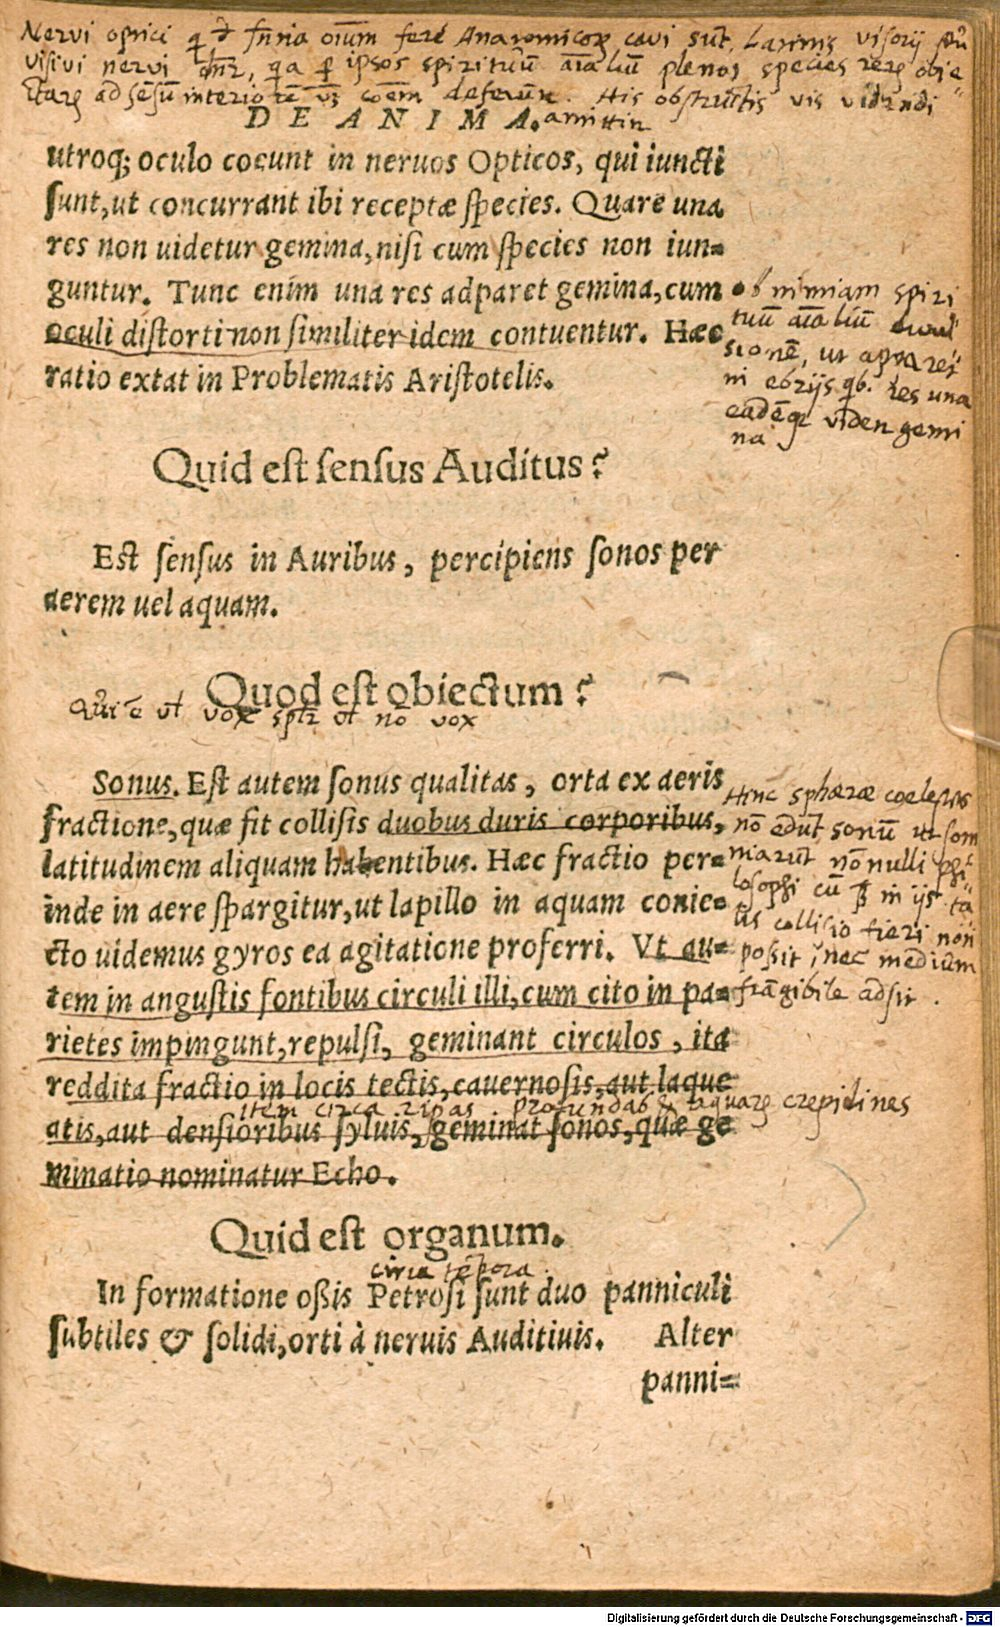 Nervi optici q̃ d fn̄ia oīum ferè Anatomicoꝝ cavi sūt, Latinis visorij
visivi nervi dn̄r, q̃a ꝑ ipsos spirituū aīaliū plenos species rerꝫ obie
ctaꝝ ad sēsū interiorē coēm deferūt. His obstructis vis vidēdi
amittitr
D E A N I M A.
utroq; oculo coeunt in neruos Opticos, qui iuncti
sunt, ut concurrant ibi receptæ species. Quare una
res non uidetur gemina, nisi cum species non iun-
guntur. Tunc enim una res adparet gemina, cum
oculi distorti non similiter idem contuentur. Hæc
ratio extat in Problematis Aristotelis.
ob nimiam spiri
tuū aīaliū
sionē, ut apparet
in ebrijs qb. res una
eadēqꝫ viden gemi
na
Quid est sensus Auditus?
Est sensus in Auribus, percipiens sonos per
aerem uel aquam.
Quod est obiectum?
vł vox vł nō vox
Sonus. Est autem sonus qualitas, orta ex aeris
fractione, quæ fit collisis duobus duris corporibus,
latitudinem aliquam habentibus. Hæc fractio per-
inde in aere spargitur, ut lapillo in aquam conie-
cto uidemus gyros ea agitatione proferri. Vt au-
tem in angustis fontibus circuli illi, cum cito in pa-
rietes impingunt, repulsi, geminant circulos, ita
reddita fractio in locis tectis, cauernosis, aut laque
item circa ripas profundas & aquaꝝ crepidines
atis, aut densioribus syluis, geminat sonos, quæ ge
minatio nominatur Echo.
Hinc sphæræ coelestes
nō edūt sonū ut som
niarūt nōnulli phi
losophi cū in ijs ta
lis collisio fieri non
possit, nec medium
frāgibile adsit.
Quid est organum.
circa tēpora.
In formatione oßis Petrosi sunt duo panniculi
subtiles & solidi, orti à neruis Auditiuis. Alter
panni-
Digitalisierung gefördert durch die Deutsche Forschungsgemeinschaft - DFG